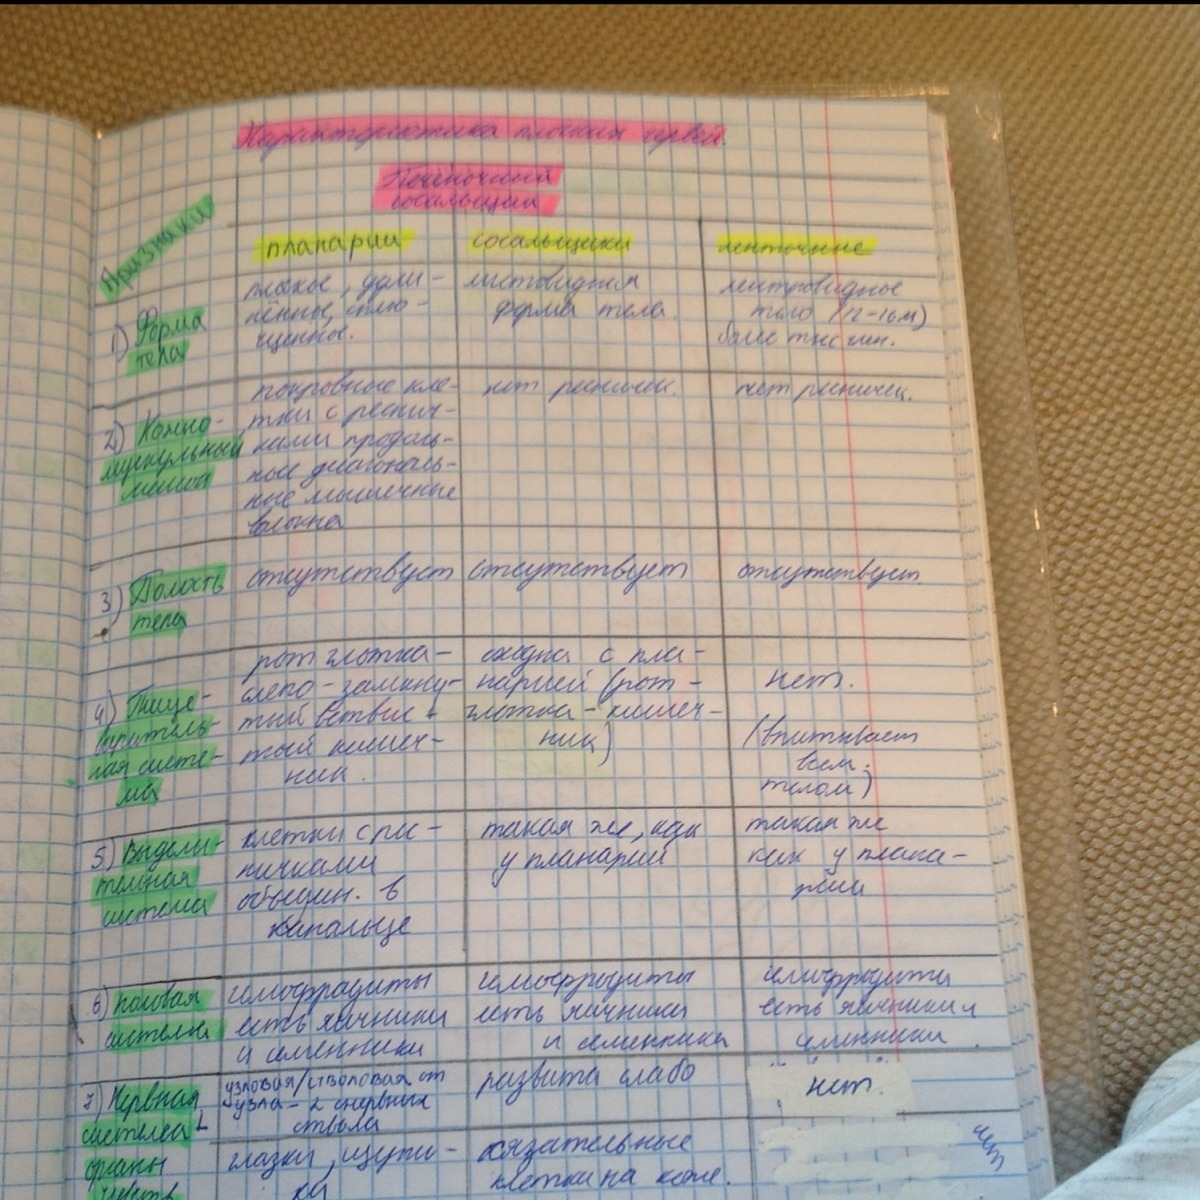 Характеристика плоских червей.
Печёночный
сосальщик
Признаки
планарии
сосальщики
ленточные
1) Форма
тела
плоское, удли-
нённые, сплю-
щенное.
листовидная
форма тела.
лентовидное
тело (12-16м)
более тыс член.
2) Кожно-
мускульный
мешок
покровные кле-
тки с реснич-
ками продоль-
ные диагональ-
ные мышечные
волокна
нет ресничек.
нет ресничек.
3) Полость
тела
отсутствует
отсутствует
отсутствует
4) Пище-
варитель-
ная систе-
ма
рот глотка-
слепо-замкну-
тый ветвис-
тый кишеч-
ник.
сходна с пла-
нарией (рот-
глотка-кишеч-
ник)
нет.
(впитывает
всем.
телом)
5) Выдели-
тельная
система
клетки с рес-
ничками
объедин. в
канальце
такая же, как
у планарий
такая же
как у плана-
рии
6) половая
система
гемофрадиты
есть яичники
и семенники
гемофродиты
есть яичники
и семенника
гемофродиты
есть яичники и
семенники
7) Нервная
система
органы
чувств
узловая/стволовая от
узла - 2 нервных
ствола
развита слабо
нет.
глазки, щупы-
ки
осязательные
клетки на коже.
нет